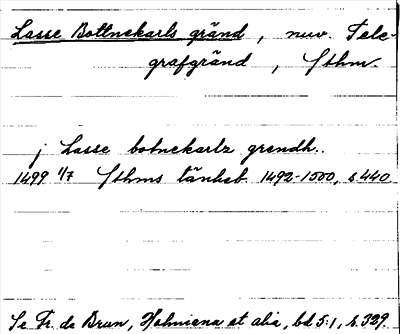 Lasse Bottnekarls gränd, nuv. Tele-
grafgränd, Sthm.
j Lasse botnekarlz grendh..
1499 1/7 Sthms tänkeb. 1492-1500, s. 440
Se Fr. de Brun, Holmiana et alia, bd 5:1, s. 329